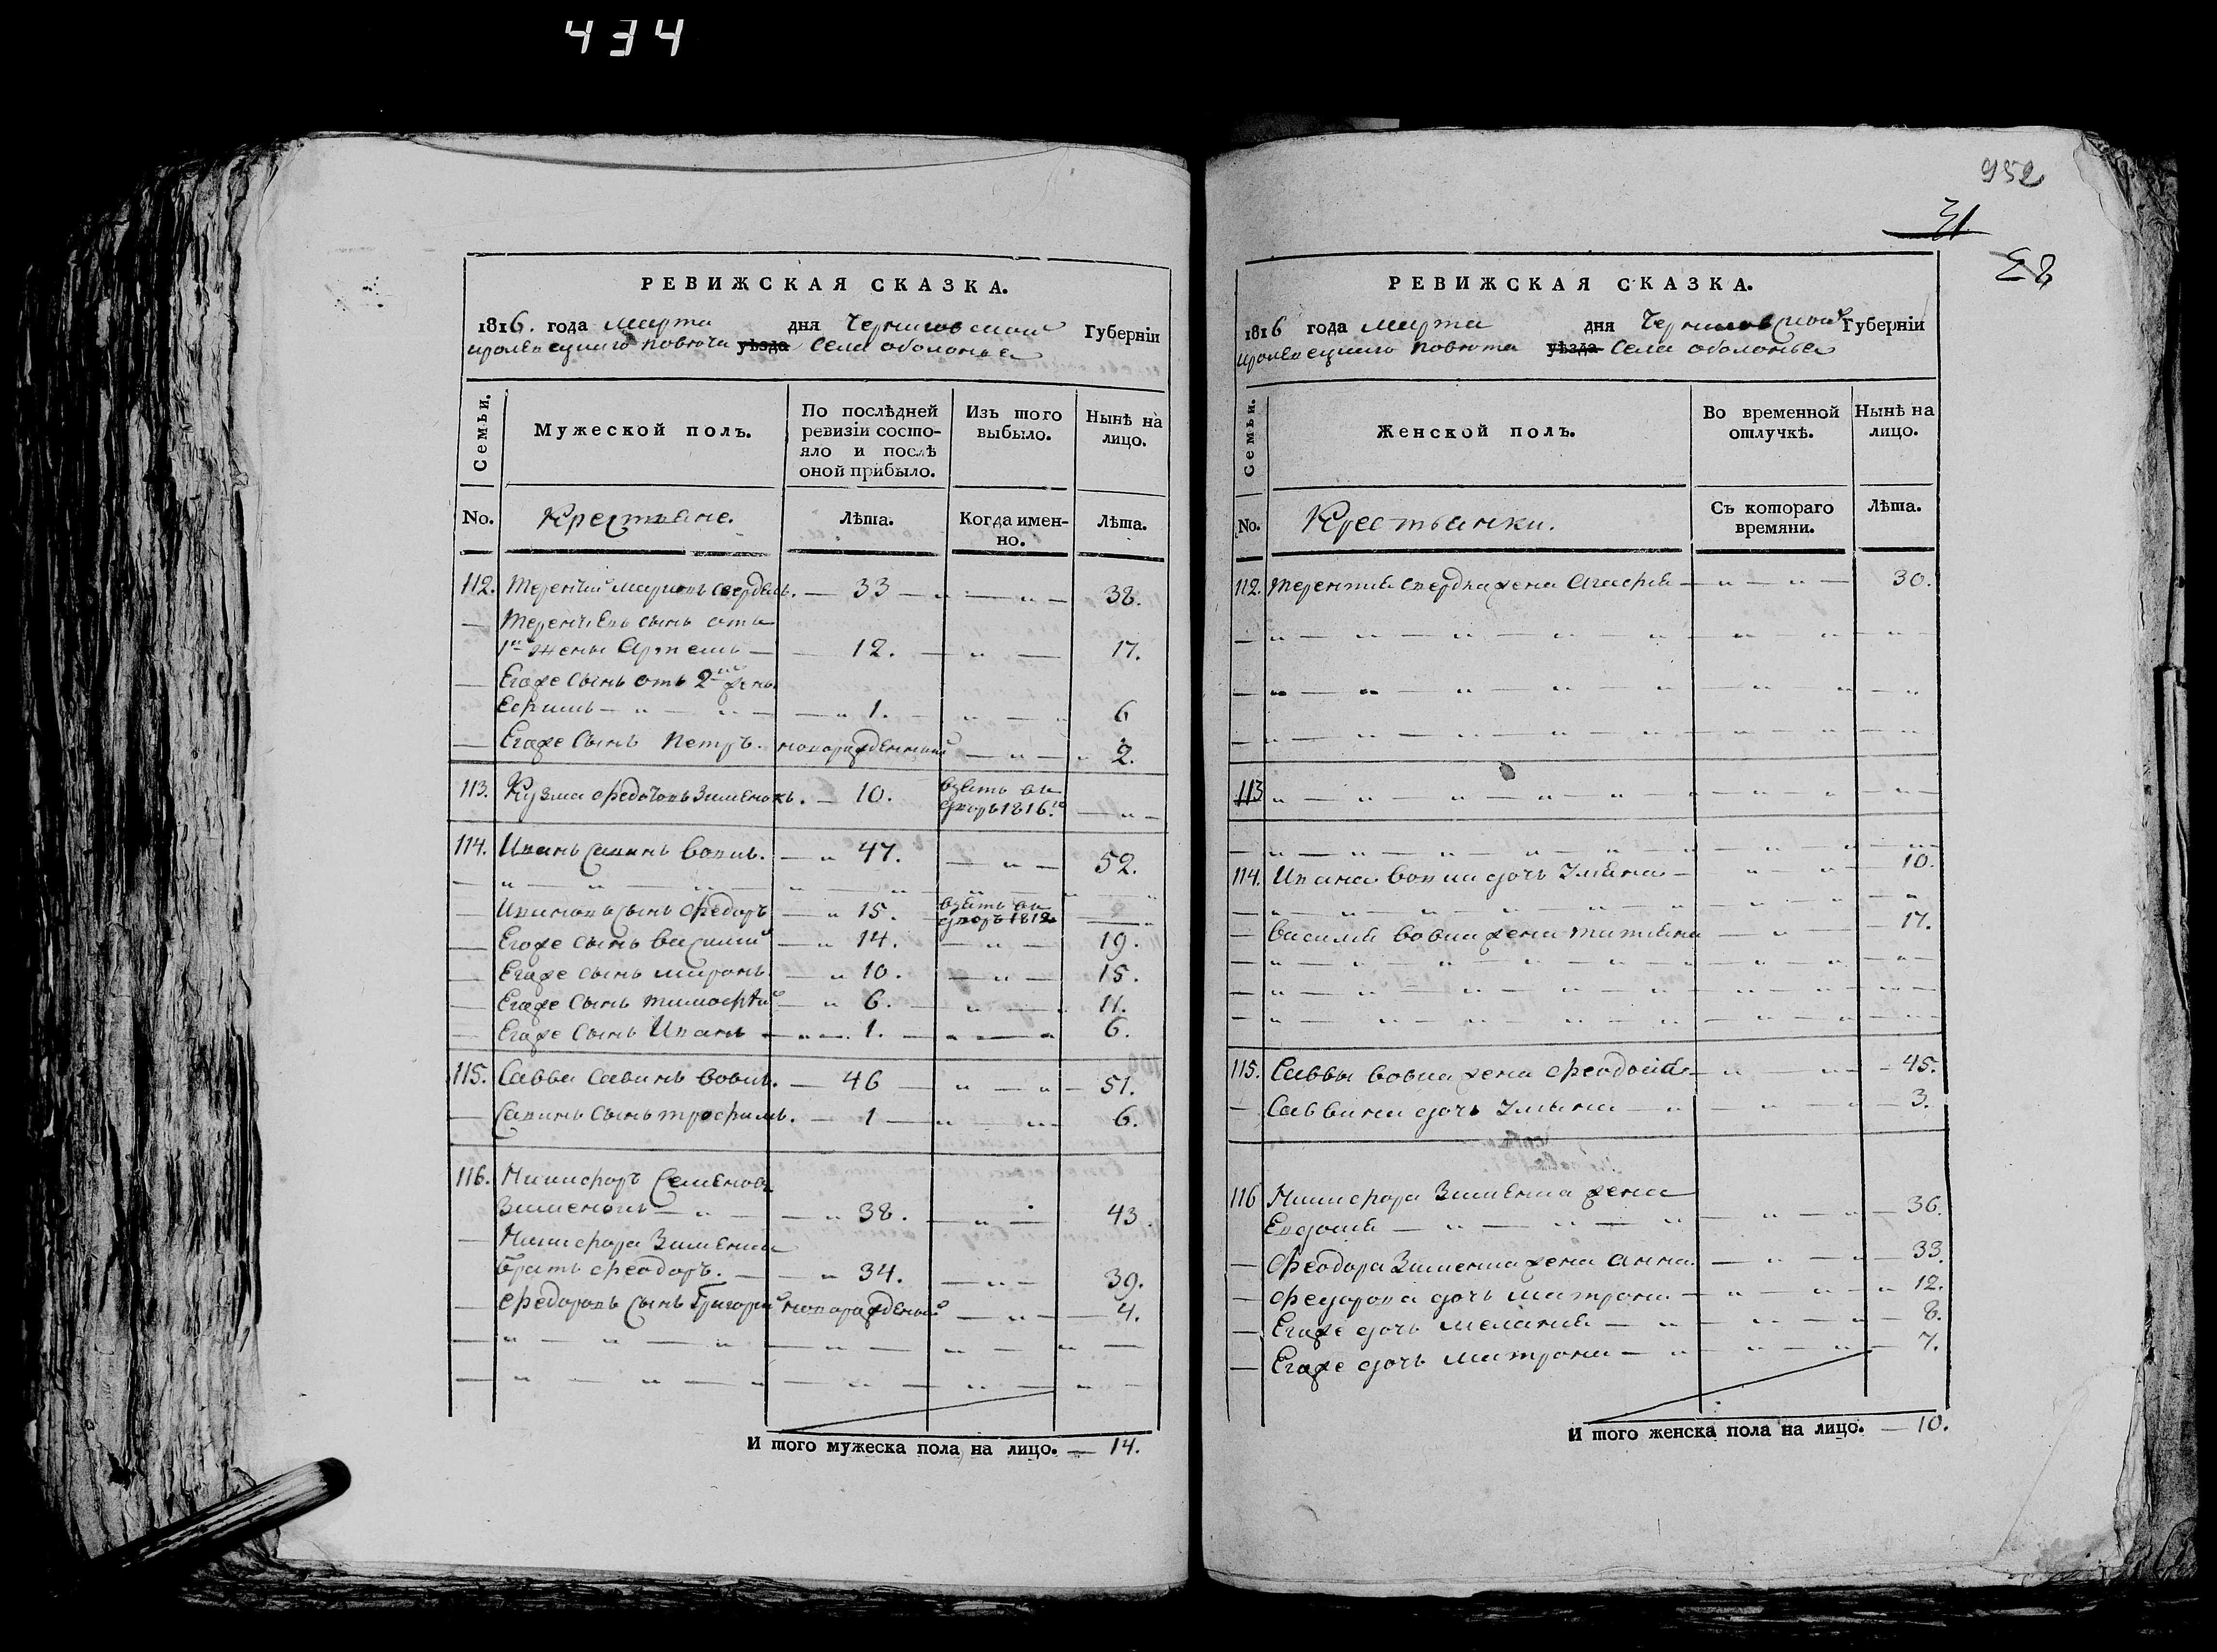 434
РЕВИЖСКАЯ СКАЗКА.
1816. года марта дня Черниговской Губернiи
кролевецкого повета уѣзда села оболонья
Семьи.
Мужеской полъ.
По послѣдней ревизiи состояло и послѣ оной прибыло.
Изъ того выбыло.
Нынѣ на лицо.
No.
Крестьяне.
Лѣта.
Когда именно.
Лѣта.
112. Терентий — 33 — 38.
Терентиевъ сынъ отъ
1й жены Артемъ — 12. — 17.
Егоже сынъ отъ 2й жены
Ефимъ — 1. — 6
Егоже сынъ Петръ. новорожденный — 2.
113. Кузма Федотовъ Зименокъ. — 10. взятъ во дворъ 1816.го
114. Иванъ Савинъ вовкъ. — 47. — 52.
Ивановъ сынъ Федоръ — 15. взятъ во дворъ 1812
Егоже сынъ василий — 14. — 19.
Егоже сынъ миронъ. — 10. — 15.
Егоже сынъ тимофей — 6. — 11.
Егоже сынъ Иванъ — 1. — 6.
115. Савва савинъ вовкъ. — 46 — 51.
Савинъ сынъ трофимъ. — 1 — 6.
116. Никифоръ Семеновъ
Зименокъ — 38. — 43.
Никифора Зименка
братъ феодоръ. — 34. — 39.
федоровъ сынъ Григорий новорожденый — 4.
И того мужеска пола на лицо. — 14.
952
31
РЕВИЖСКАЯ СКАЗКА.
1816 года марта дня Черниговской Губернiи
кролевецкого повета уѣзда села оболонья
Семьи.
Женской полъ.
Во временной отлучкѣ.
Нынѣ на лицо.
No.
Крестьянки.
Съ котораго времяни.
Лѣта.
112. Терентия жена Агафия — 30.
113
114. Ивана вовка дочь Улияна — 10.
василия вовка жена татияна — 17.
115. Саввы вовка жена феодосия — 45.
Саввина дочь Улияна — 3.
116 Никифора Зименка жена
Евдокия — 36.
феодора Зименка жена анна. — 33.
федорова дочь матрона — 12.
Егоже дочь мелания — 8.
Егоже дочь матрона — 7.
И того женска пола на лицо. — 10.